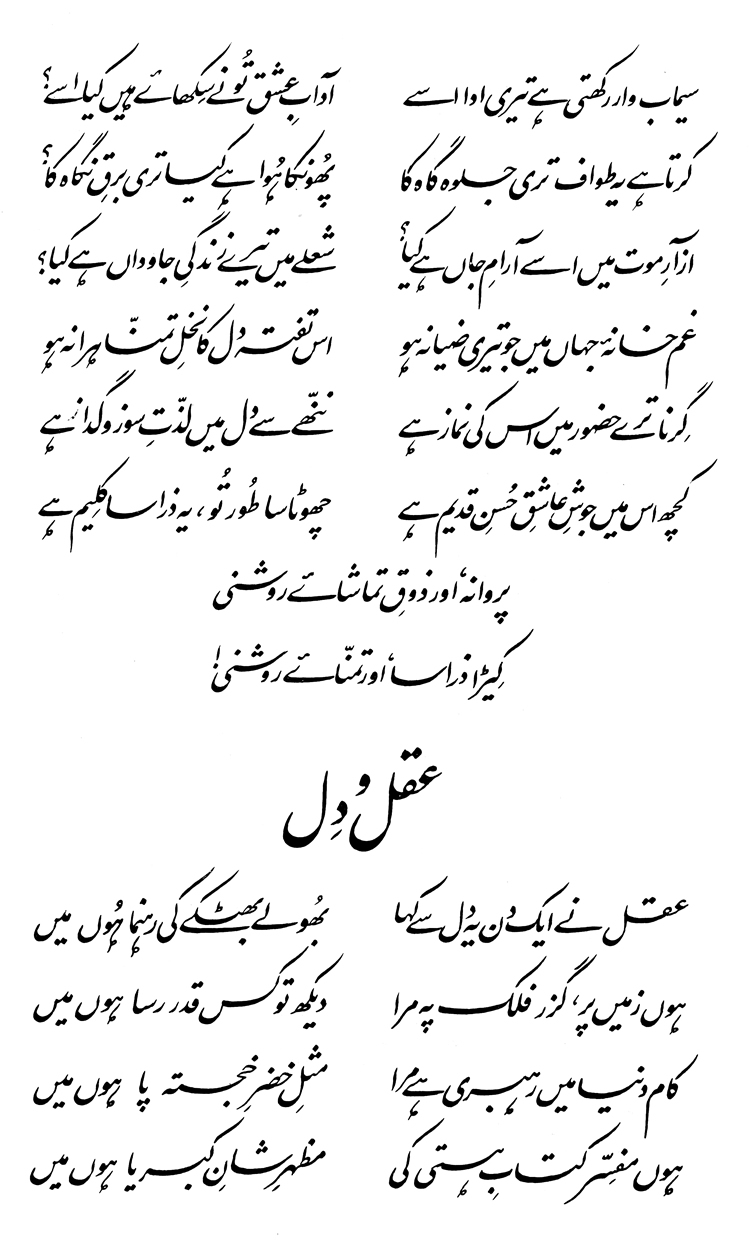 سیماب وار رکھتی ہے تیری ادا اسے آدابِ عشق تُو نے سِکھائے ہیں کیا اسے؟
کرتا ہے یہ طواف تری جلوہ گاہ کا پھُونکا ہُوا ہے کیا تری برقِ نگاہ کا؟
ازآرِ موت میں اسے آرامِ جاں ہے کیا؟ شعلے میں تیرے زندگیِ جاوداں ہے کیا؟
غم خانۂ جہاں میں جو تیری ضیا نہ ہو اس تفتہ دل کا نخلِ تمنّا ہرا نہ ہو
گِرنا ترے حضور میں اس کی نماز ہے ننھّے سے دل میں لذّتِ سوز و گداز ہے
کچھ اس میں جوشِ عاشقِ حُسنِ قدیم ہے چھوٹا سا طُور تُو، یہ ذرا سا کلِیم ہے
پروانہ، اور ذوقِ تماشائے روشنی
کِیڑا ذرا سا، اور تمنّائے روشنی!
عقل و دِل
عقل نے ایک دن یہ دل سے کہا بھُولے بھٹکے کی رہنما ہُوں میں
ہوں زمیں پر، گزر فلک پہ مرا دیکھ تو کس قدر رسا ہوں میں
کام دنیا میں رہبری ہے مرا مثلِ خضرِ خجستہ پا ہوں میں
ہوں مفسِّر کتابِ ہستی کی مظہرِ شانِ کبریا ہوں میں